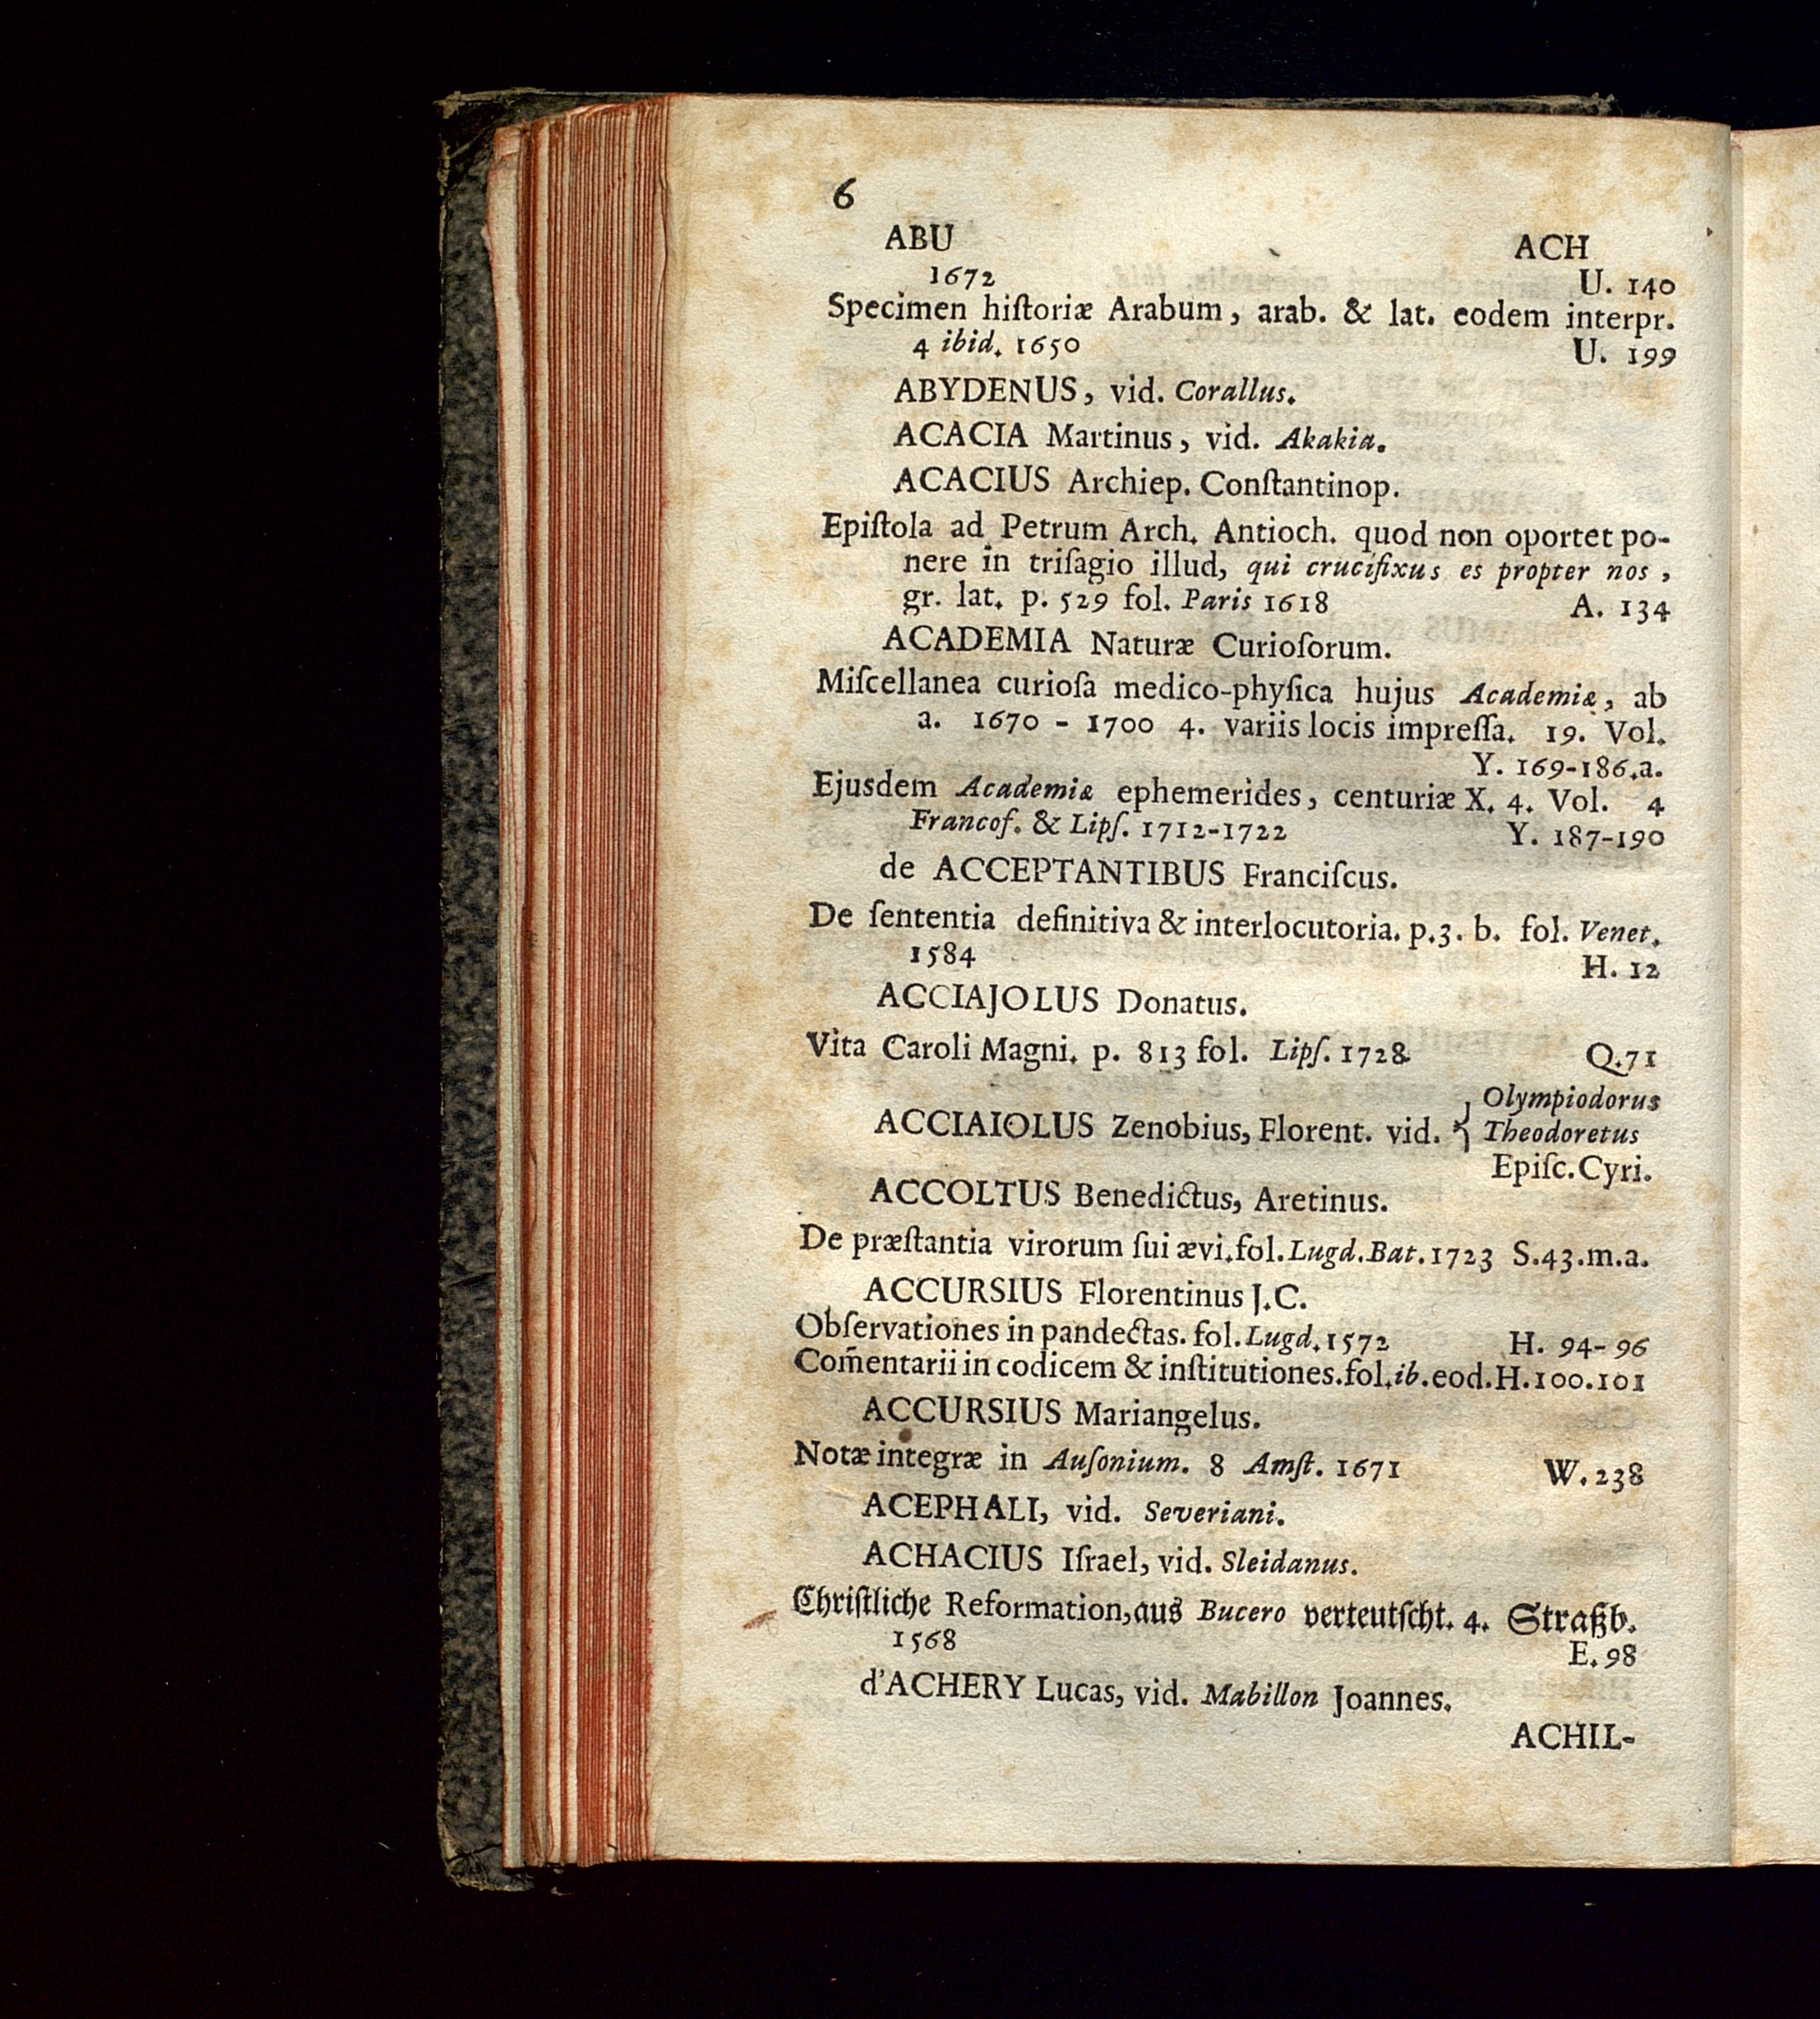 6
ABU ACH
1672 U. 140
Specimen hiſtoriæ Arabum, arab. & lat. eodem interpr.
4 ibid. 1650 U. 199
ABYDENUS, vid. Corallus.
ACACIA Martinus, vid. Akakia.
ACACIUS Archiep. Conſtantinop.
Epiſtola ad Petrum Arch. Antioch. quod non oportet po-
nere in triſagio illud, qui crucifixus es propter nos,
gr. lat. p. 529 fol. Paris 1618 A. 134
ACADEMIA Naturæ Curioſorum.
Miſcellanea curioſa medico-phyſica hujus Academiæ, ab
a. 1670 - 1700 4. variis locis impreſſa. 19. Vol.
Y. 169-186.a.
Ejusdem Academiæ ephemerides, centuriæ X. 4. Vol. 4
Francof. & Lipſ. 1712-1722 Y. 187-190
de ACCEPTANTIBUS Franciſcus.
De ſententia definitiva & interlocutoria. p.3. b. fol. Venet.
1584 H. 12
ACCIAJOLUS Donatus.
Vita Caroli Magni. p. 813 fol. Lipſ. 1728 Q.71
Olympiodorus
ACCIAIOLUS Zenobius, Florent. vid. { Theodoretus
Epiſc. Cyri.
ACCOLTUS Benedictus, Aretinus.
De præſtantia virorum ſui ævi. fol. Lugd. Bat. 1723 S.43.m.a.
ACCURSIUS Florentinus J.C.
Obſervationes in pandectas. fol. Lugd. 1572 H. 94-96
Com̃entarii in codicem & inſtitutiones. fol. ib. eod. H.100.101
ACCURSIUS Mariangelus.
Notæ integræ in Auſonium. 8 Amſt. 1671 W. 238
ACEPHALI, vid. Severiani.
ACHACIUS Iſrael, vid. Sleidanus.
Chriſtliche Reformation, aus Bucero verteutſcht. 4. Straßb.
1568 E. 98
d'ACHERY Lucas, vid. Mabillon Joannes.
ACHIL-